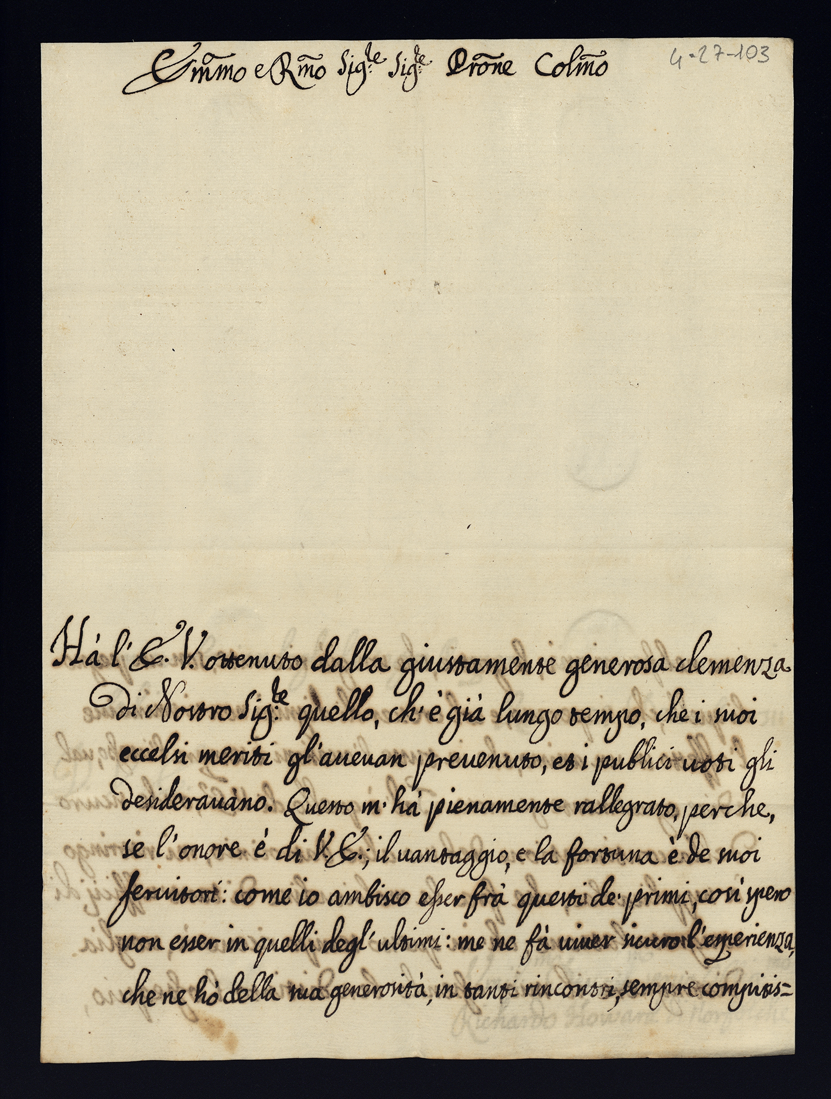 Em̃mo e R̃mo Sig.re Sig.re Pr̃one Colm̃o
4-27-103
Hà l'E. V. ottenuto dalla giustamente generosa clemenza
di Nostro Sig.re quello, ch'è già lungo tempo, che i suoi
eccelsi meriti gl'aueuan preuenuto, et i publici uoti gli
desiderauano. Questo m'hà pienamente rallegrato, perche,
se l'onore è di V. E.; il uantaggio, e la fortuna è de suoi
seruitori: come io ambisco esser frà questi de' primi, così spero
non esser in quelli degl'ultimi: me ne fà uiuer sicuro l'esperienza,
che ne hò della sua generosità, in tanti rincontri, sempre compitis=